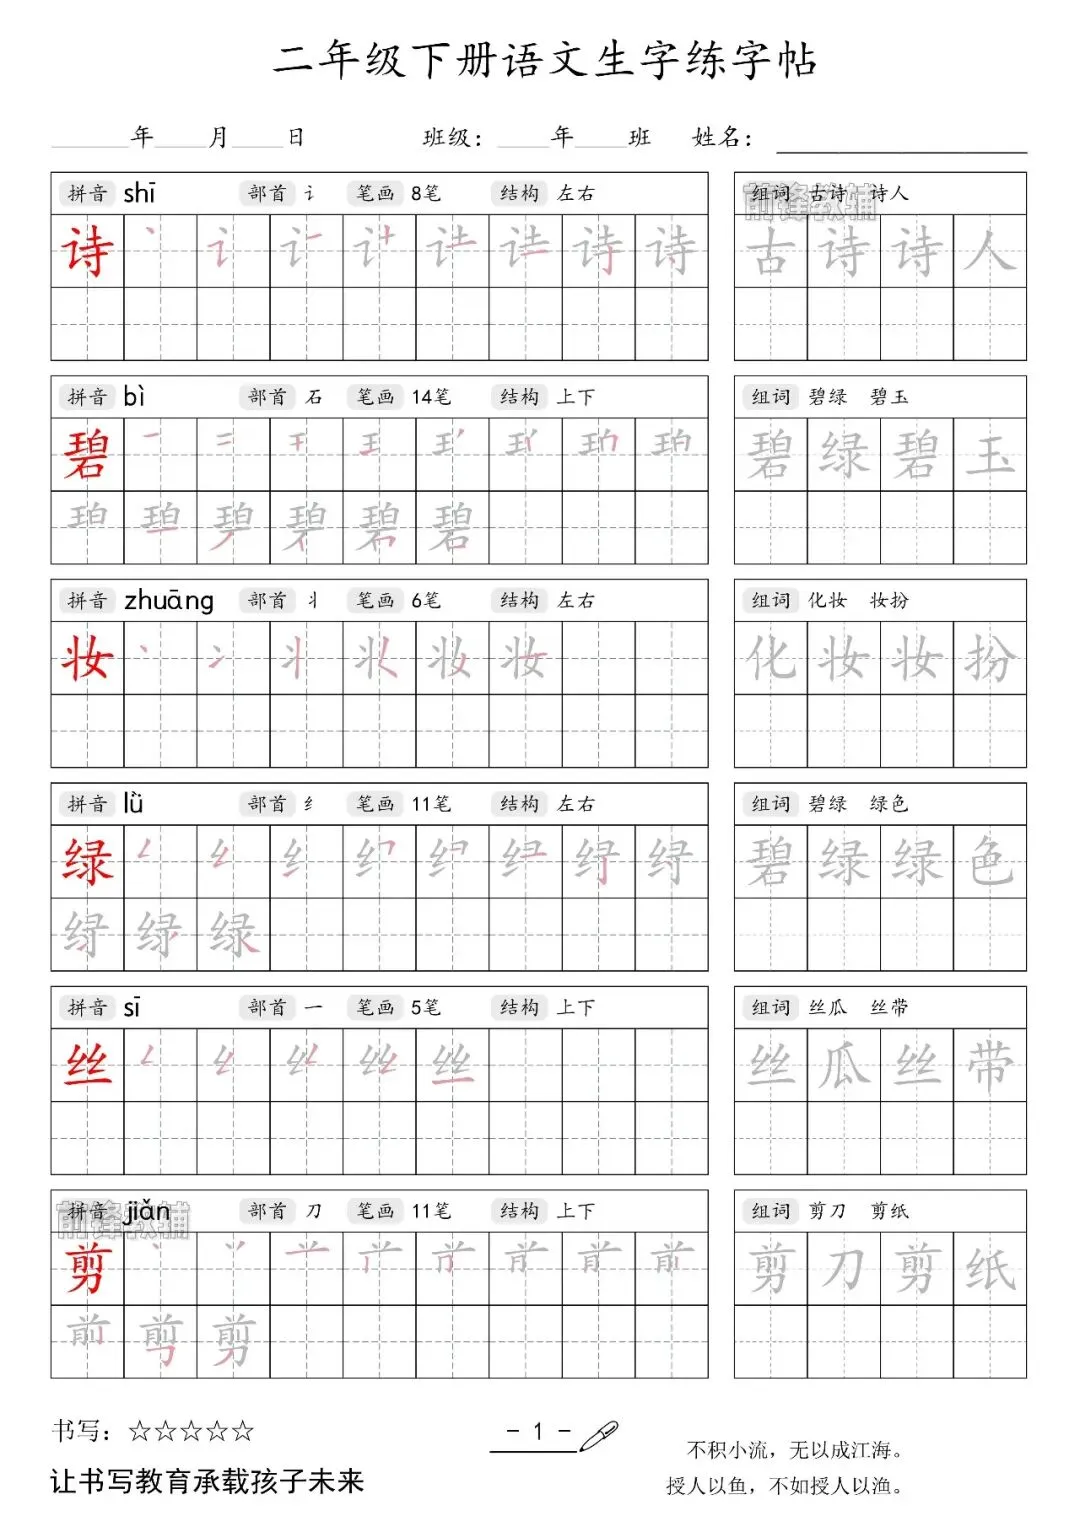 二年级下册语文生字练字帖
年 月 日 班级： 年 班 姓名：
拼音 shī 部首 讠 笔画 8笔 结构 左右
组词 古诗 诗人
前锋教辅
诗
古 诗 诗 人
拼音 bì 部首 石 笔画 14笔 结构 上下
组词 碧绿 碧玉
碧
碧 绿 碧 玉
拼音 zhuāng 部首 丬 笔画 6笔 结构 左右
组词 化妆 妆扮
妆
化 妆 妆 扮
拼音 lǜ 部首 纟 笔画 11笔 结构 左右
组词 碧绿 绿色
绿
碧 绿 绿 色
拼音 sī 部首 一 笔画 5笔 结构 上下
组词 丝瓜 丝带
丝
丝 瓜 丝 带
拼音 jiǎn 部首 刀 笔画 11笔 结构 上下
前锋教辅
组词 剪刀 剪纸
剪
剪 刀 剪 纸
书写：☆☆☆☆☆
- 1 -
不积小流，无以成江海。
让书写教育承载孩子未来
授人以鱼，不如授人以渔。